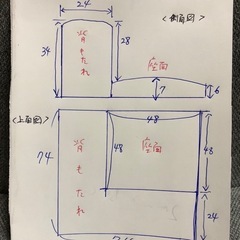 24
<側面図>
34
背もたれ
28
座面
7
6
<上面図>
48
74
背もたれ
48
座面
48
24